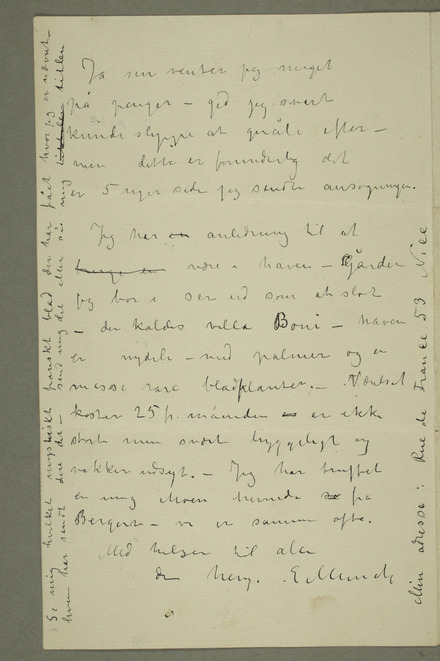 Ja nu venter jeg meget
på penger – gid jeg snart
kunde slippe at gråte efter –
men dette er forunderlig det
er 5 uger siden jeg sendte ansøgningen.
Jeg har en anledning til at
være i haven – Gården
jeg bor i ser ud som et slot
– den kaldes villa Boni – haven
er nydeli – med palmer og en
masse rare bladplanter. – Værelset
koster 25 fr. måneden er ikke
stort men svært hyggeligt og
vakker udsigt. – Jeg har truffet
en ung Moen hernede fra
Bergen – vi er sammen ofte.
Med hilsen til alle
din heng. E Munch
Min adresse: Rue de France 53 Nice
Se mig hvilket mystiskt franskt blad der har fåt hvor jeg er nævnt –
hvem har sendt dere det – send mig det eller sig mig titlen